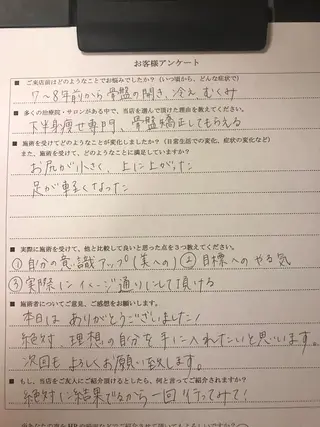 お客様アンケート
■ ご来店前はどのようなことでお悩みでしたか?(いつ頃から、どんな症状で)
7〜8年前から骨盤の開き、冷え、むくみ
■ 多くの治療院・サロンがある中で、当店を選んで頂けた理由を教えてください。
下半身痩せ専門、骨盤矯正してもらえる
■ 施術を受けてどのようなことが変化しましたか?(日常生活での変化、症状の変化など)
また、施術を受けて、どのようことに満足していますか?
お尻が小さく、上に上がった
足が軽くなった
■ 実際に施術を受けて、他と比較して良いと思った点を3つ教えてください。
①自分の意識アップ(美への) ②目標へのやる気
③実際にイメージ通りにして頂ける
■ 施術者についてご意見、ご感想をお願いします。
本日はありがとうございました!
絶対、理想の自分を手に入れたいと思います。
次回もよろしくお願い致します。
■ もし、当店をご友人にご紹介頂けるとしたら、何と言ってご紹介されますか?
絶対に結果でるから一回行ってみて!